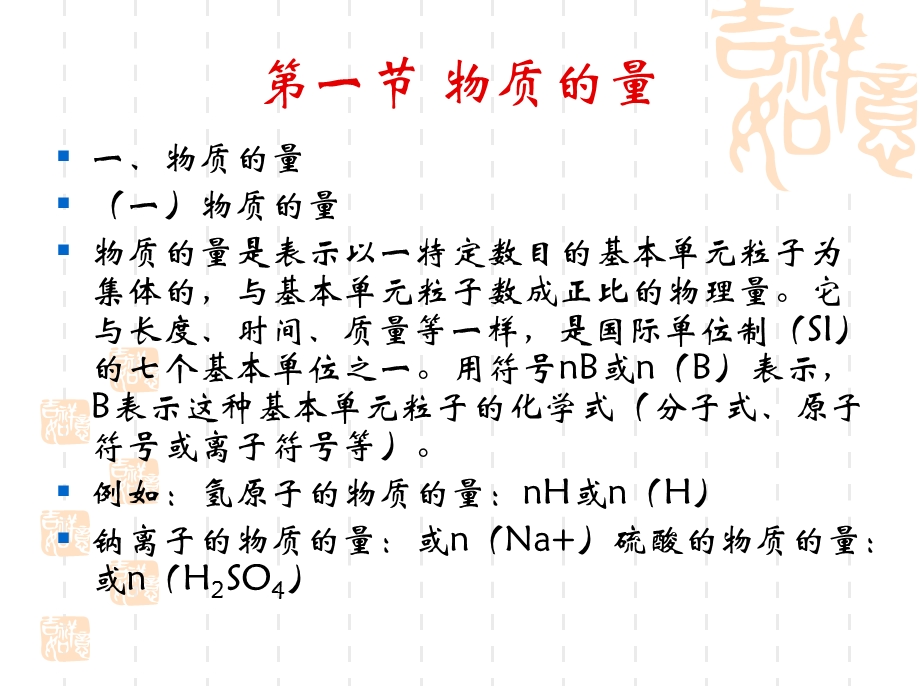 吉祥如意
第一节 物质的量
一、物质的量
（一）物质的量
物质的量是表示以一特定数目的基本单元粒子为
集体的，与基本单元粒子数成正比的物理量。它
与长度、时间、质量等一样，是国际单位制（SI）
的七个基本单位之一。用符号nB或n（B）表示，
B表示这种基本单元粒子的化学式（分子式、原子
符号或离子符号等）。
例如：氢原子的物质的量：nH或n（H）
钠离子的物质的量：或n（Na+）硫酸的物质的量：
或n（H₂SO₄）
吉祥如意
吉祥如意
吉祥如意
吉祥如意
吉祥如意
吉祥如意